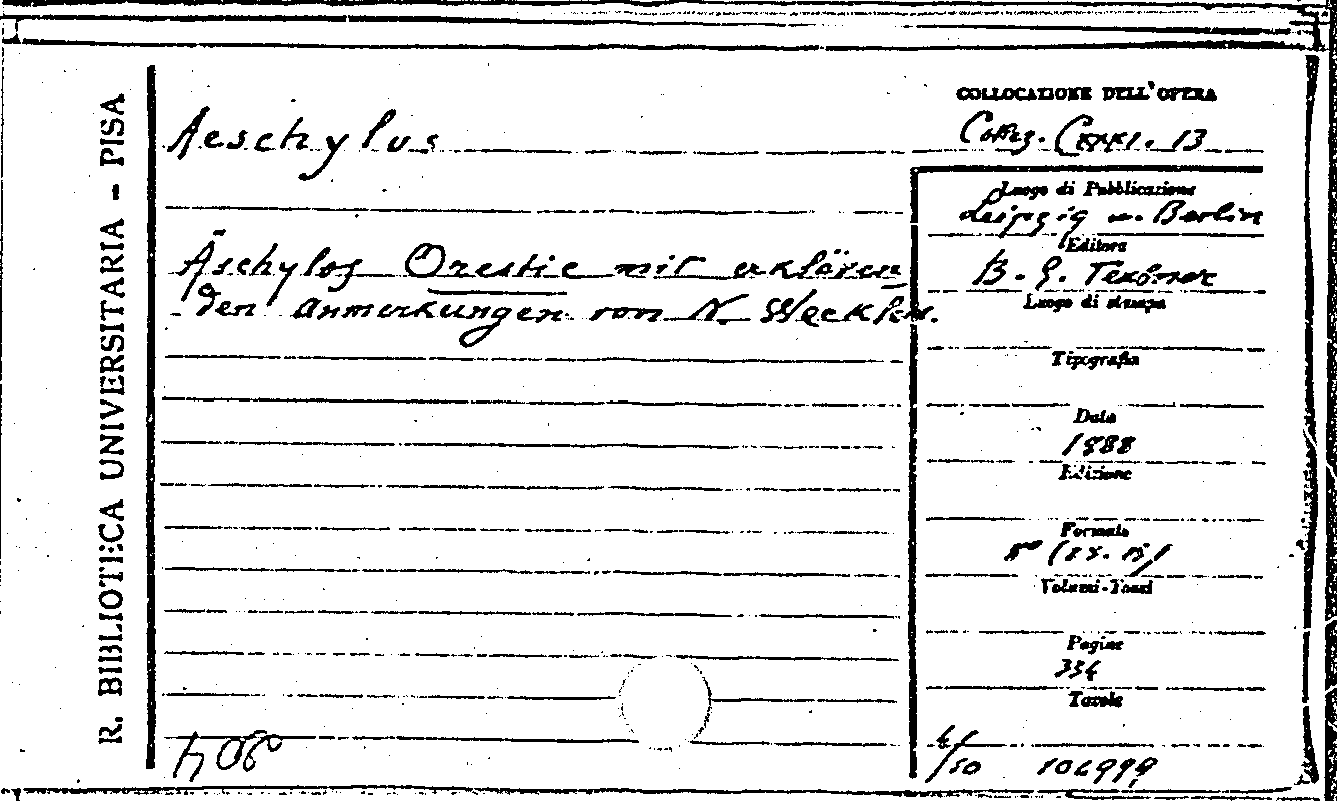 R. BIBLIOTECA UNIVERSITARIA - PISA
Aeschylus
Äschylos Orestie mit erklären
den Anmerkungen von N. Wecklein.
COLLOCAZIONE DELL'OPERA
13
Luogo di Pubblicazione
Leipzig u. Berlin
Editore
B. G. Teubner
Luogo di stampa
Tipografia
Data
1888
Edizione
Formato
8°
Volumi-Tomi
Pagine
354
Tavole